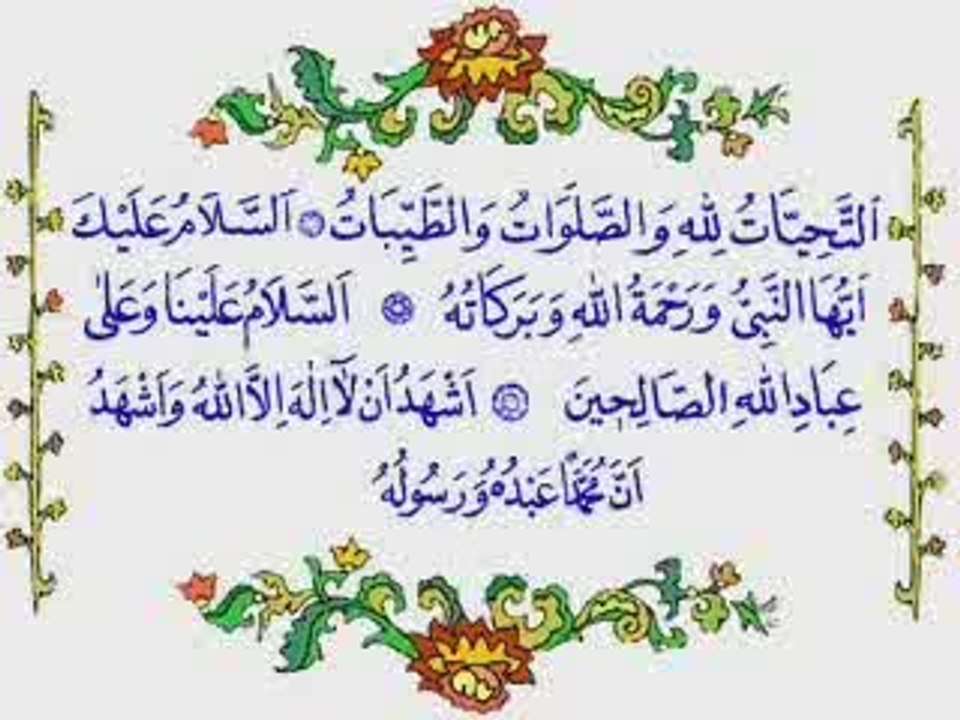 اَلتَّحِيَّاتُ لِلّٰهِ وَالصَّلَوَاتُ وَالطَّيِّبَاتُ ۞ اَلسَّلَامُ عَلَيْكَ
اَيُّهَا النَّبِيُّ وَرَحْمَةُ اللهِ وَبَرَكَاتُهُ ۞ اَلسَّلَامُ عَلَيْنَا وَعَلٰى
عِبَادِ اللهِ الصَّالِحِينَ ۞ اَشْهَدُ اَنْ لَآ اِلٰهَ اِلَّا اللهُ وَاَشْهَدُ
اَنَّ مُحَمَّدًا عَبْدُهُ وَرَسُولُهُ